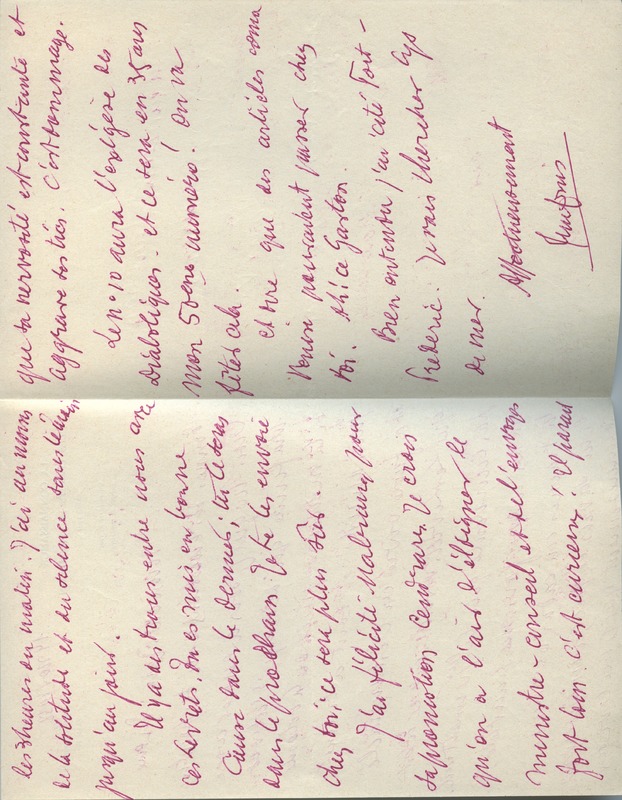 les 3 heures du matin. J'ai au moins
de la solitude et du silence sous le
jusqu'au jour.
Il y a des trous entre nous avec
ces livrets. Tu es mis en bonne
cause dans le dernier, tu le seras
dans le prochain. Je te les envoie
chez toi, ce sera plus sûr.
J'ai félicité Mabrung pour
sa promotion Cendrars. Je crois
qu'on a l'air d'éloigner le
ministre-conseil et de l'envoyer
fort loin. C'est curieux! Il paraît
que ta nervosité est constante et
aggrave tes tics. C'est dommage.
Le n° 10 aura l'exégèse des
Diaboliques - et ce sera en 35 ans
mon 50ème numéro! On va
fêter cela.
et dire que des articles comme
Venise pourraient passer chez
toi.
Bien entendu j'ai cité Fort-
Frédéric. Je vais chercher Lys
de mer.
Affectueusement